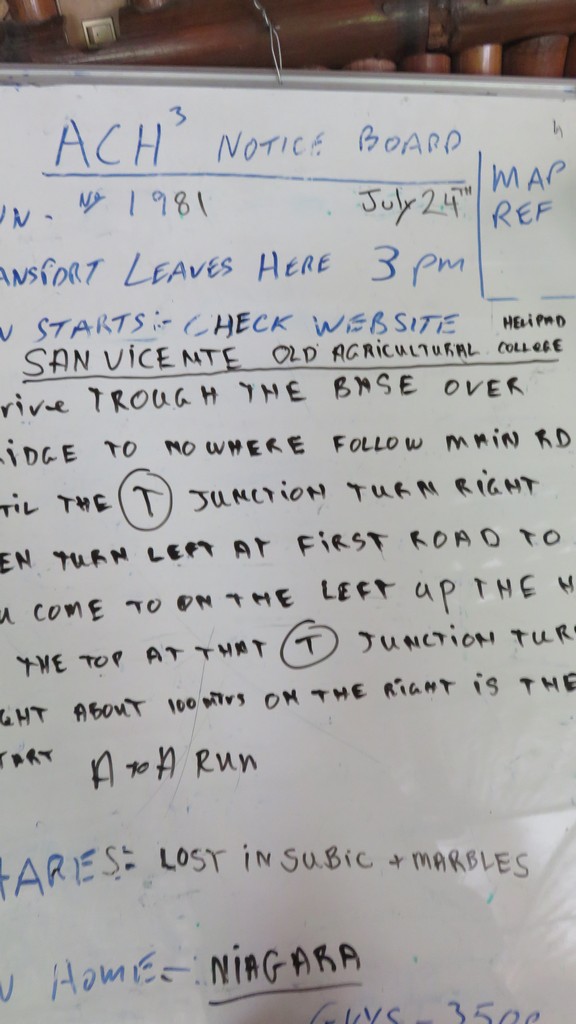 ACH³ NOTICE BOARD
UN - Nº 1981 July 24TH
MAP
REF
ANSPORT LEAVES HERE 3 pm
N STARTS:- CHECK WEBSITE HELIPAD
SAN VICENTE OLD AGRICULTURAL COLLEGE
rive TROUGH THE BASE OVER
IDGE TO NOWHERE FOLLOW MAIN RD
TIL THE T JUNCTION TURN RIGHT
EN TURN LEFT AT FIRST ROAD TO
U COME TO ON THE LEFT UP THE H
THE TOP AT THAT T JUNCTION TUR
GHT ABOUT 100 mtrs ON THE RIGHT IS THE
TART A to A RUN
HARES:- LOST IN SUBIC + MARBLES
N HOME -: NIAGARA
GUYS - 350